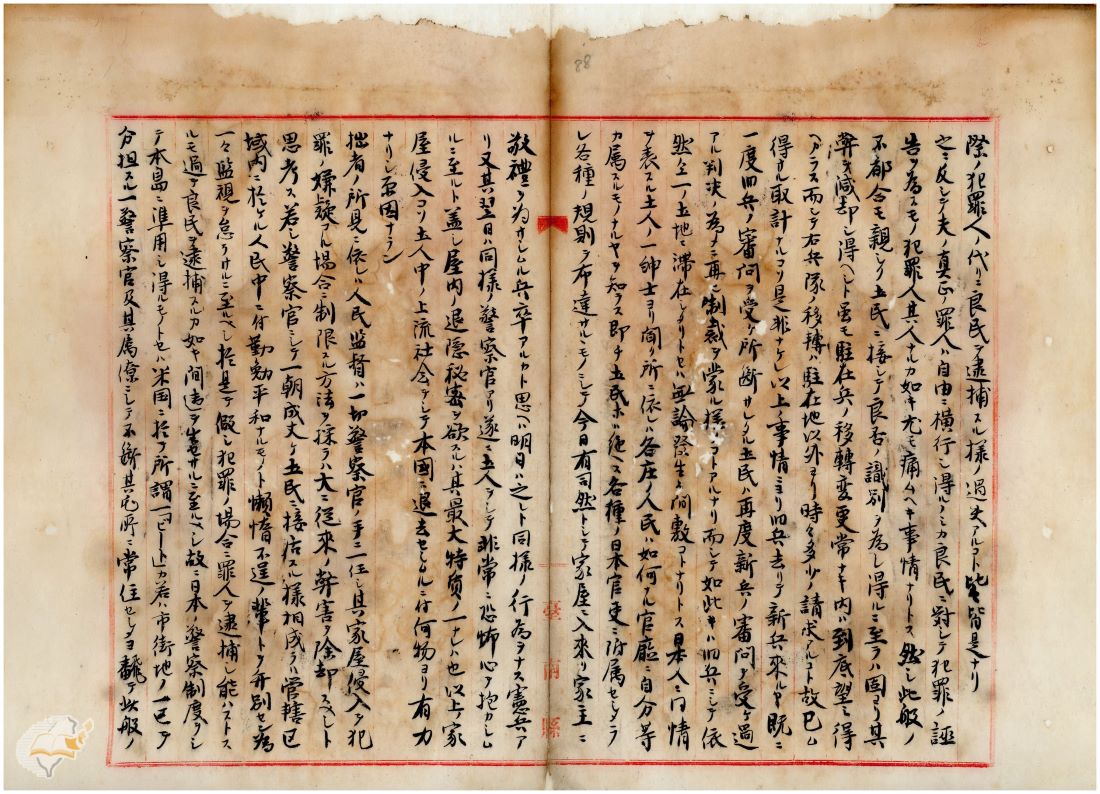 88
際ノ犯罪人ノ代リニ良民ヲ逮捕スル様ノ過失アルコト皆是ナリ
之ニ反シテ夫ノ真正ノ罪人ハ自由ニ横行シ得ルノミカ良民ニ對シテ犯罪ノ誣
告ヲ為スモノ犯罪人其人ナルカ如キ尤モ痛ムヘキ事情ナリトス然シ此般ノ
不都合モ親シク土民ニ接シテ良否ノ識別ヲ為シ得ルニ至ラハ固ヨリ其
弊ヲ減却シ得ヘシト雖モ駐在兵ノ移轉変更常ナキ内ハ到底望ミ得
ヘアラス而シテ右兵隊ノ移轉ハ駐在地以外ヨリ時々多少ノ請求アルコト故已ム
得サル取計ナルコリ是非ナケレ以上ノ事情ニヨリ旧兵去リテ新兵来ルヤ既ニ
一度旧兵ノ審問ヲ受ケ所断サレタル土民ハ再度新兵ノ審問ヲ受ケ過
アル判决ノ為メニ再ヒ制裁ヲ蒙ル様ノコトアルナリ而シテ如此キハ旧兵ニシテ依
然仝一ノ土地ニ滞在シタリトセハ無論發生ノ間敷コトナリトス日本人ニ同情
ヲ表スル土人ノ一紳士ヨリ聞リ所ニ依レハ各庄人民ハ如何ナル官廳ニ自分等
カ属スルモノナルヤヲ知ラス即チ土民ホ從ス各種ノ日本官吏ニ附属セシメラ
レ各種ノ規則ヲ布達サルヽモノニシテ今日有司然トシテ家屋ニ入來リ家主ニ
敬禮ヲ為サシムル兵卒アルカト思ヘハ明日ハ之レト同様ノ行為ヲナス憲兵ア
リ又其翌日ハ同様ノ警察官アリ遂ニ土人ヲシテ非常ニ恐怖心ヲ抱カシム
ルニ至ルト蓋シ屋内ノ退隠秘密ヲ欲スルハ其最大特質ノ一ナレハ也以上ノ家
屋侵入コソ土人中ノ上流社会ヲシテ本國ニ退去セシメタルニ付何物ヨリ有力
ナリシ原因ナラン
拙者ノ所見ニ依レハ人民監督ハ一切警察官ノ手ニ一任シ其家屋侵入ヲ犯
罪ノ嫌疑アル場合ニ制限スル方法ヲ採ラハ大ニ從來ノ弊害ヲ除却スヘシト
思考ス若シ警察官ニシテ一朝成丈ケ土民ニ接沽スル様相成ラハ管轄区
域内ニ於ケル人民中ニ付勤勉平和ナルモノト懶惰不逞ノ輩トヲ弁別セシ為
一々監視ヲ怠ラサルニ至ルヘシ於是乎假シ犯罪ノ場合ニ罪人ヲ逮捕シ能ハストス
ルモ過テ良民ヲ逮捕スルカ如キ間違ヲ生セサルニ至ルヘシ故ニ日本ノ警察制度ヲシ
テ本島ニ準用シ得ルモノトセハ米国ニ於テ所謂一「ビート」カ若ハ市街地ノ一区ヲ
分担スル一警察官及其属僚ニシテ不断其屯所ニ常住セシメヨ飜テ此般ノ
臺南縣